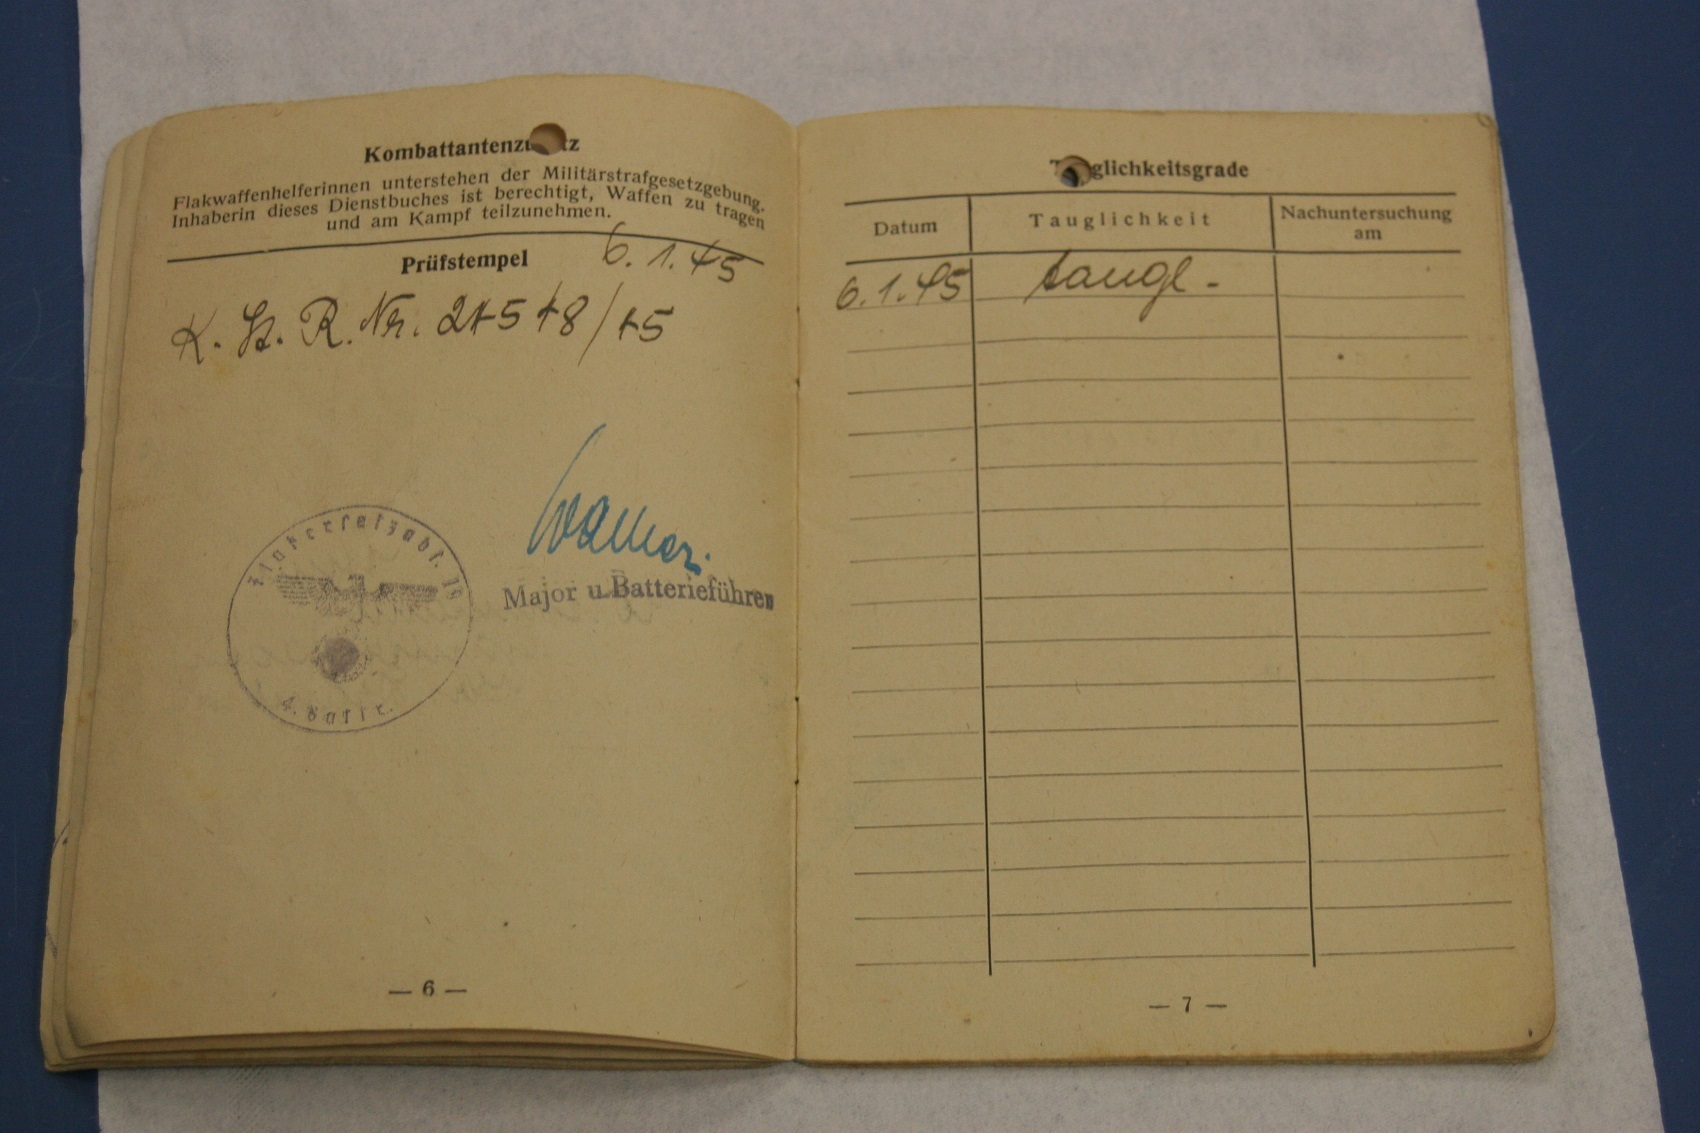 Kombattantenzusatz
Flakwaffenhelferinnen unterstehen der Militärstrafgesetzgebung.
Inhaberin dieses Dienstbuches ist berechtigt, Waffen zu tragen
und am Kampf teilzunehmen.
Prüfstempel
6. 1. 45
K. St. R. Nr.
Flakersatzabt.
4. Battr.
Major u. Batterieführer
— 6 —
Tauglichkeitsgrade
Datum Tauglichkeit Nachuntersuchung
am
6. 1. 45 taugl.
— 7 —